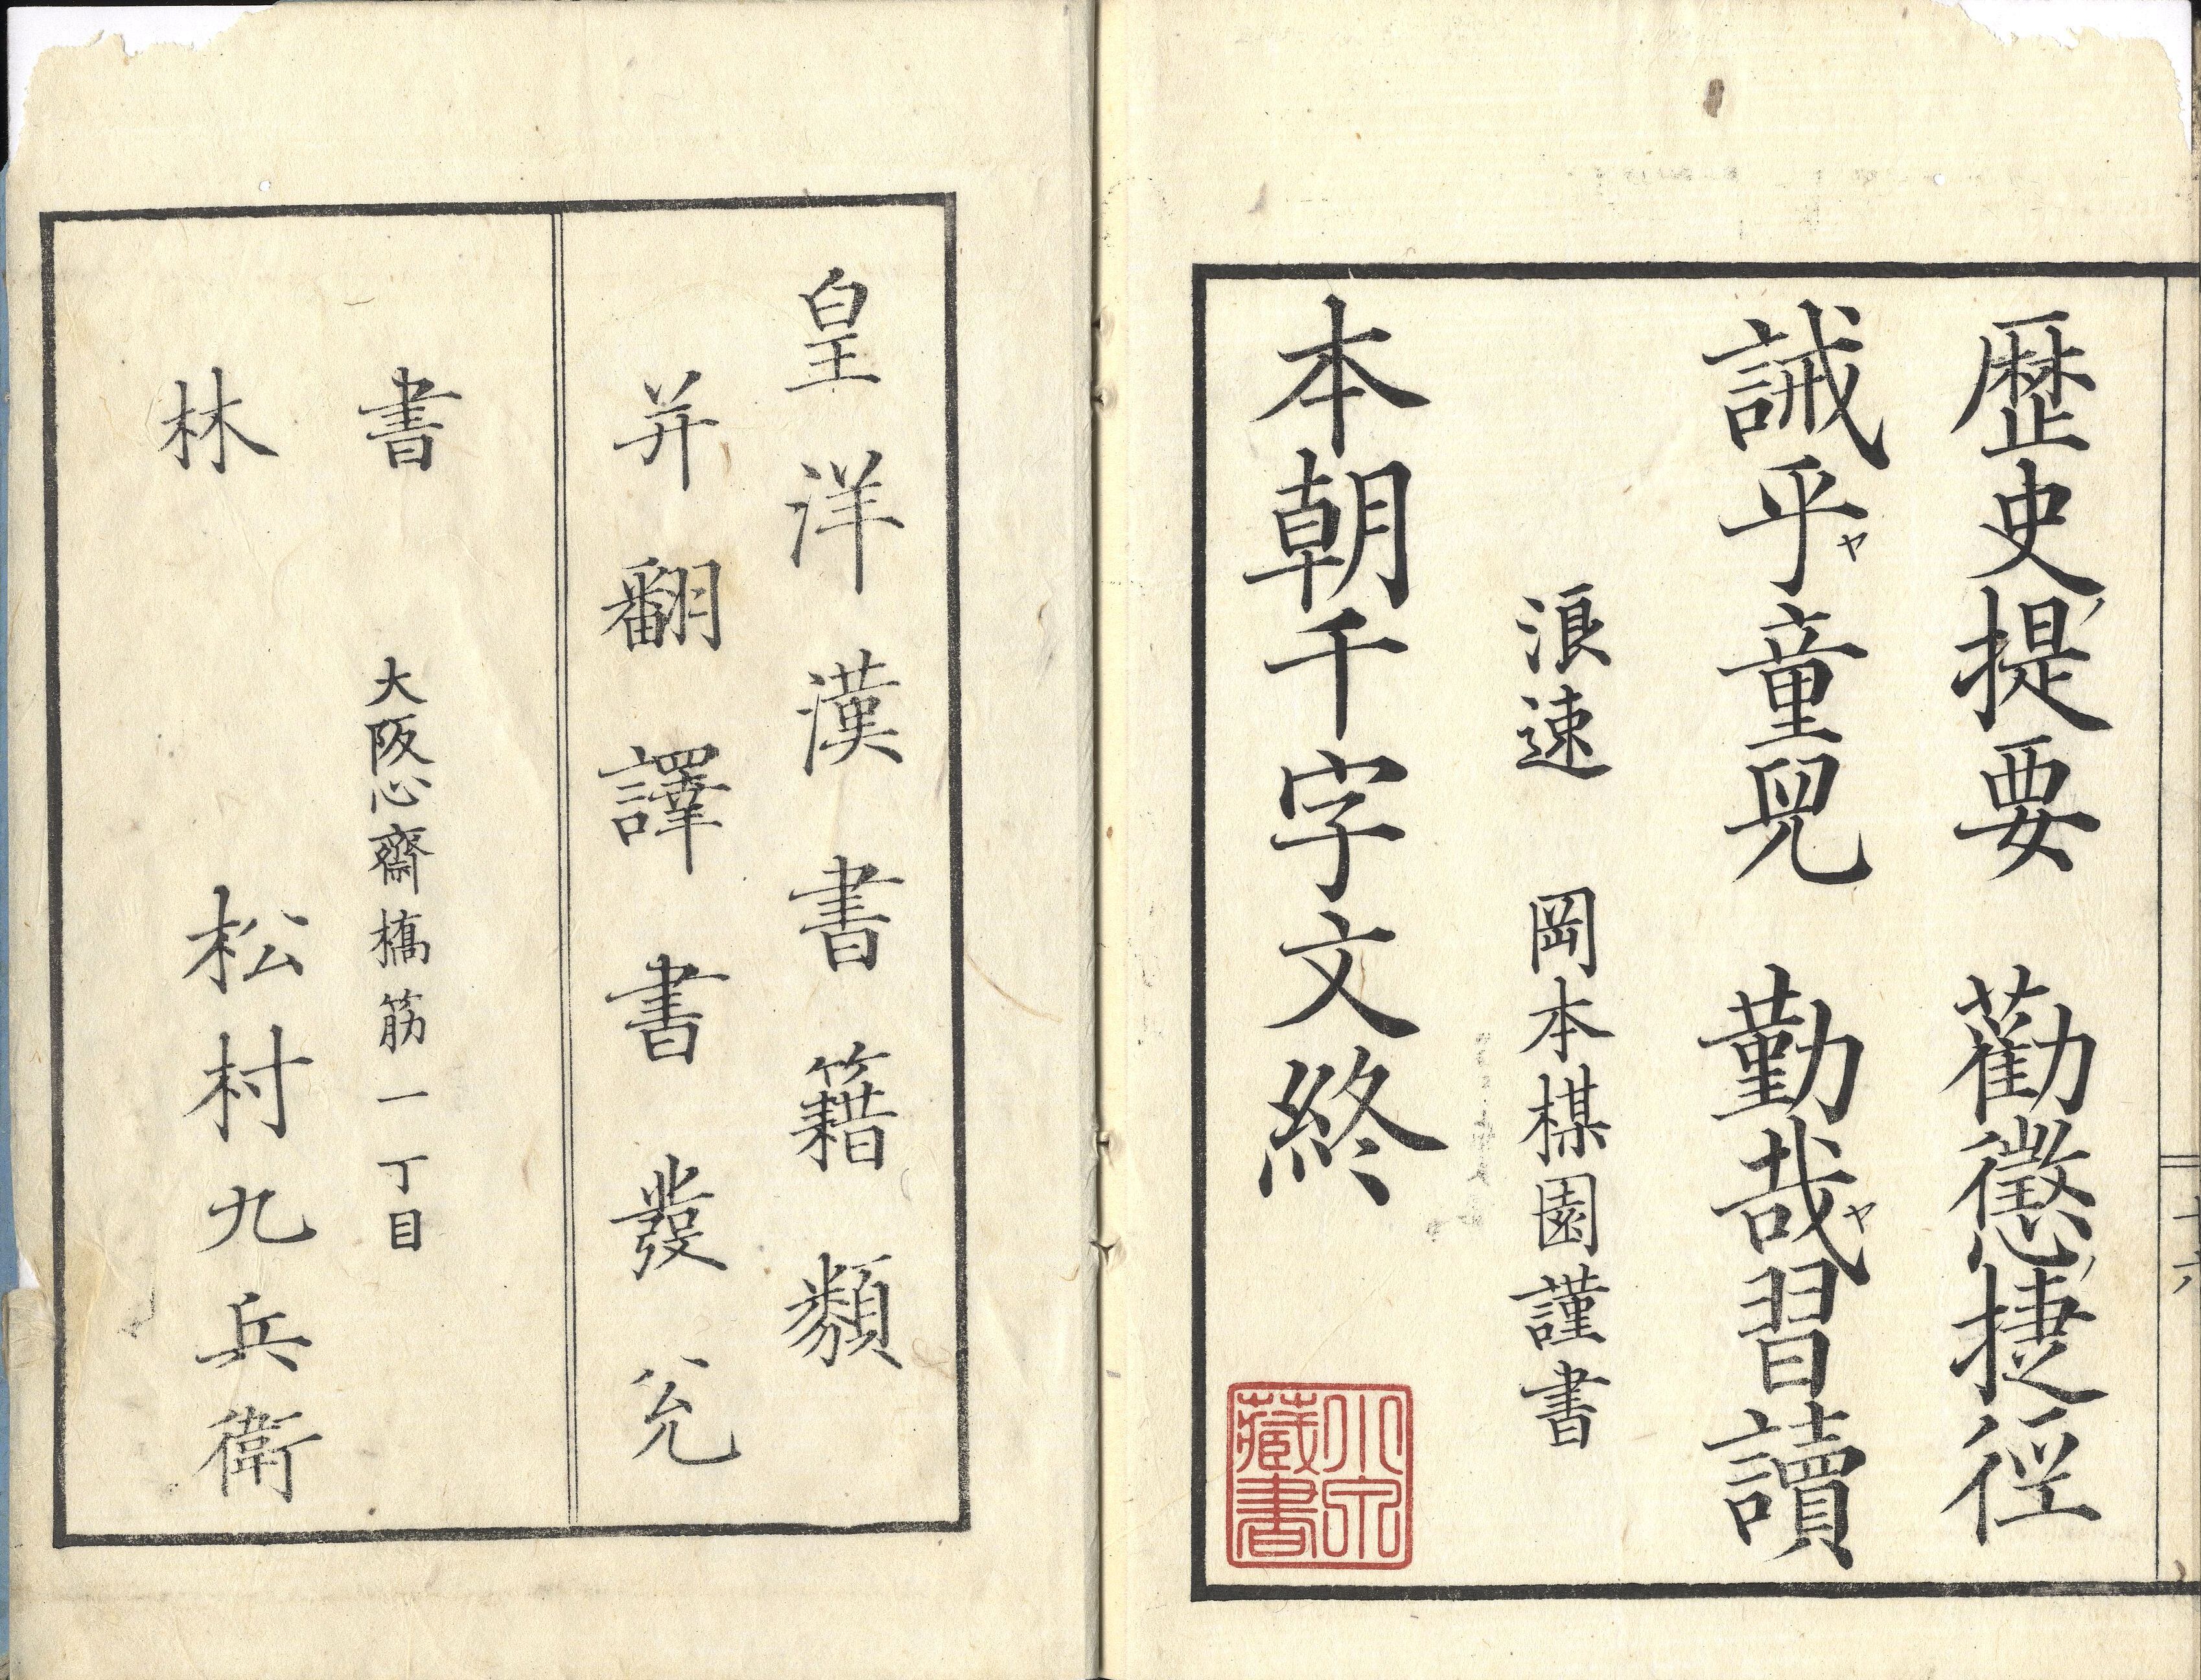 歴史提要　勸懲捷徑
誡乎ヤ童兒　勤哉ヤ習讀
浪速　岡本楳園謹書
本朝千字文終
十六
皇洋漢書籍類
并翻譯書發兌
書林
大阪心齋橋筋一丁目
松村九兵衛